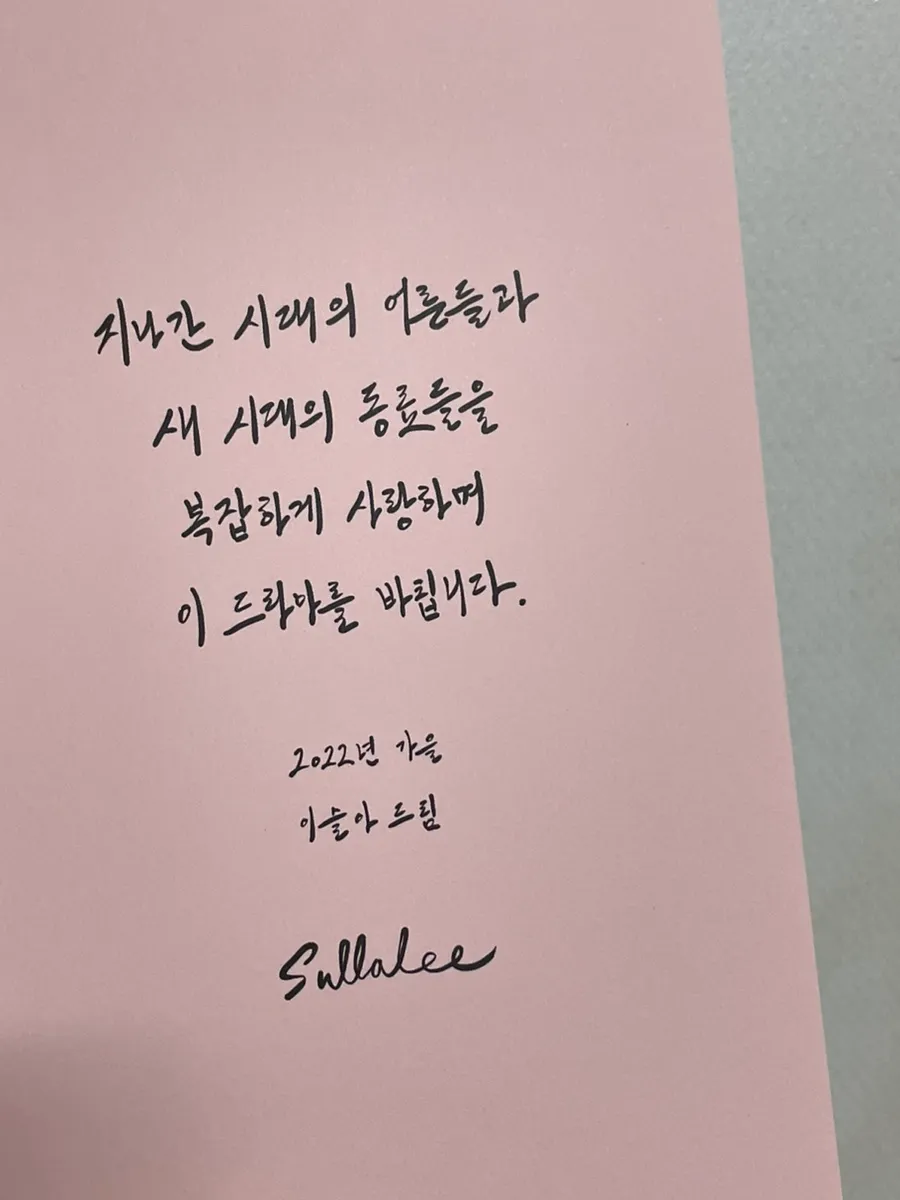 지나간 시대의 어른들과
새 시대의 동료들을
복잡하게 사랑하며
이 드라마를 바칩니다.
2022년 가을
이슬아 드림
Sullalee